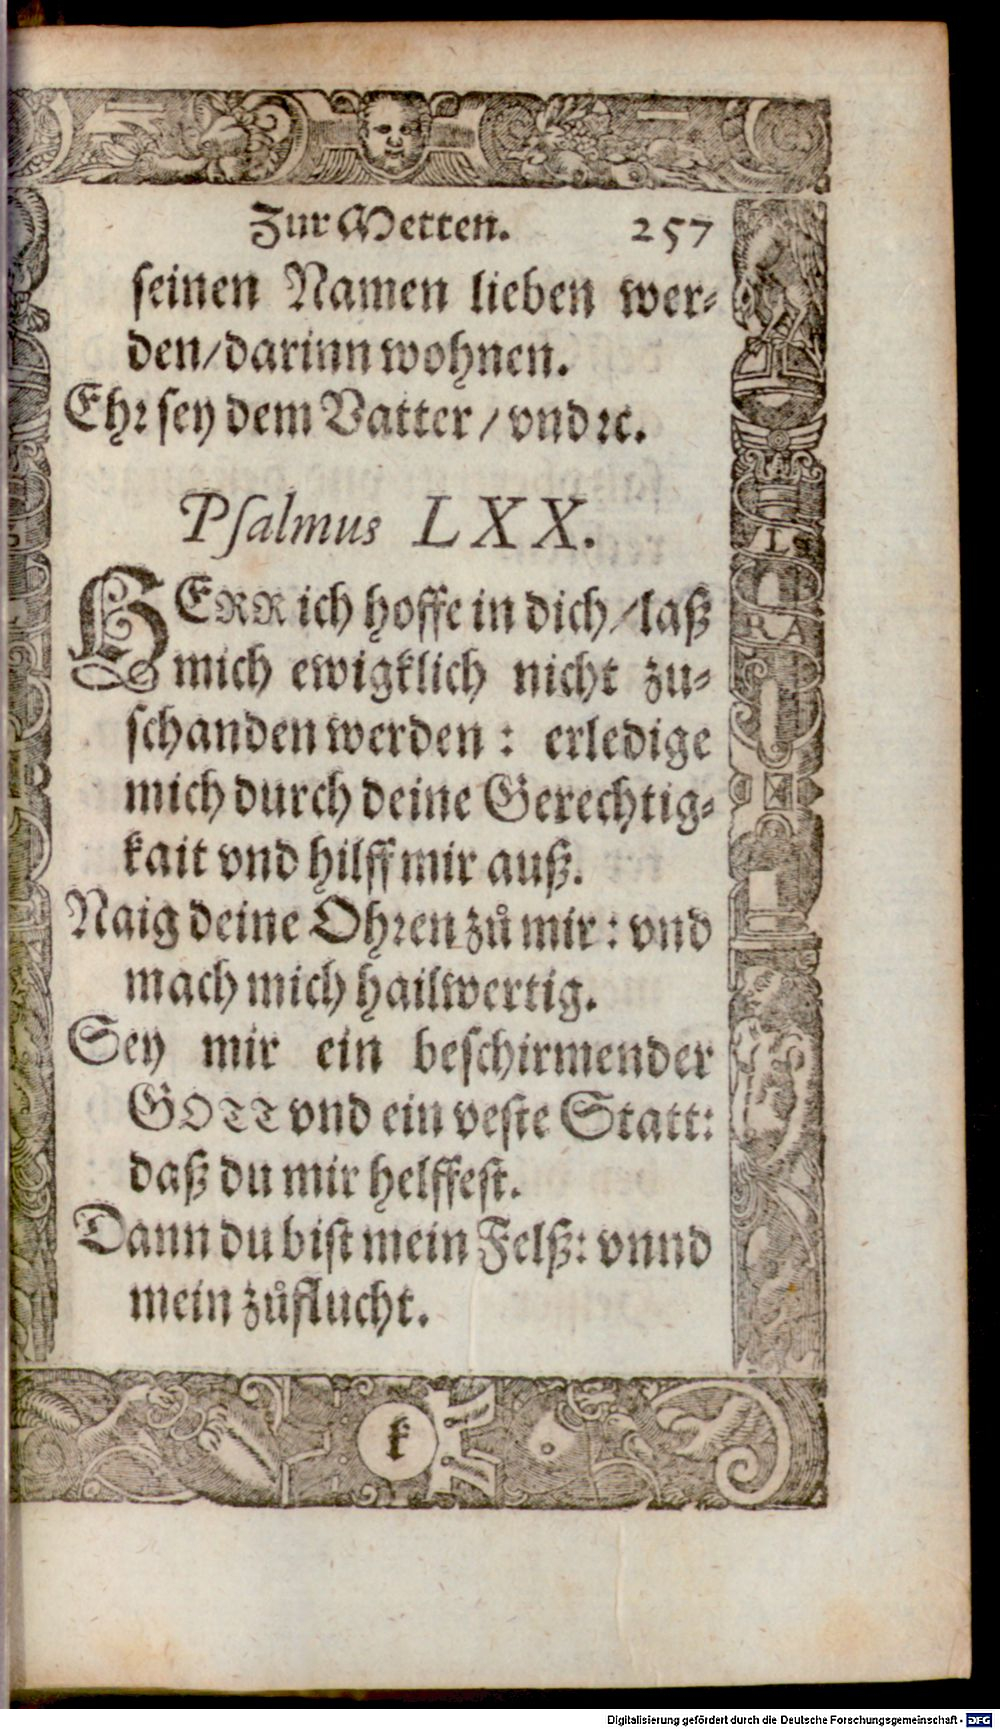 Zur Metten. 257
seinen Namen lieben wer⸗
den/darinn wohnen.
Ehꝛ sey dem Vatter / vnd ꝛc.
Psalmus LXX.
HERR ich hoffe in dich/laß
mich ewigklich nicht zu⸗
schanden werden : erledige
mich durch deine Gerechtig⸗
kait vnd hilff mir auß.
Naig deine Ohꝛen zů mir : vnd
mach mich hailwertig.
Sey mir ein beschirmender
GOTT vnd ein veste Statt:
daß du mir helffest.
Dann du bist mein Felß: vnnd
mein zůflucht.
L
RA
k
Digitalisierung gefördert durch die Deutsche Forschungsgemeinschaft - DFG